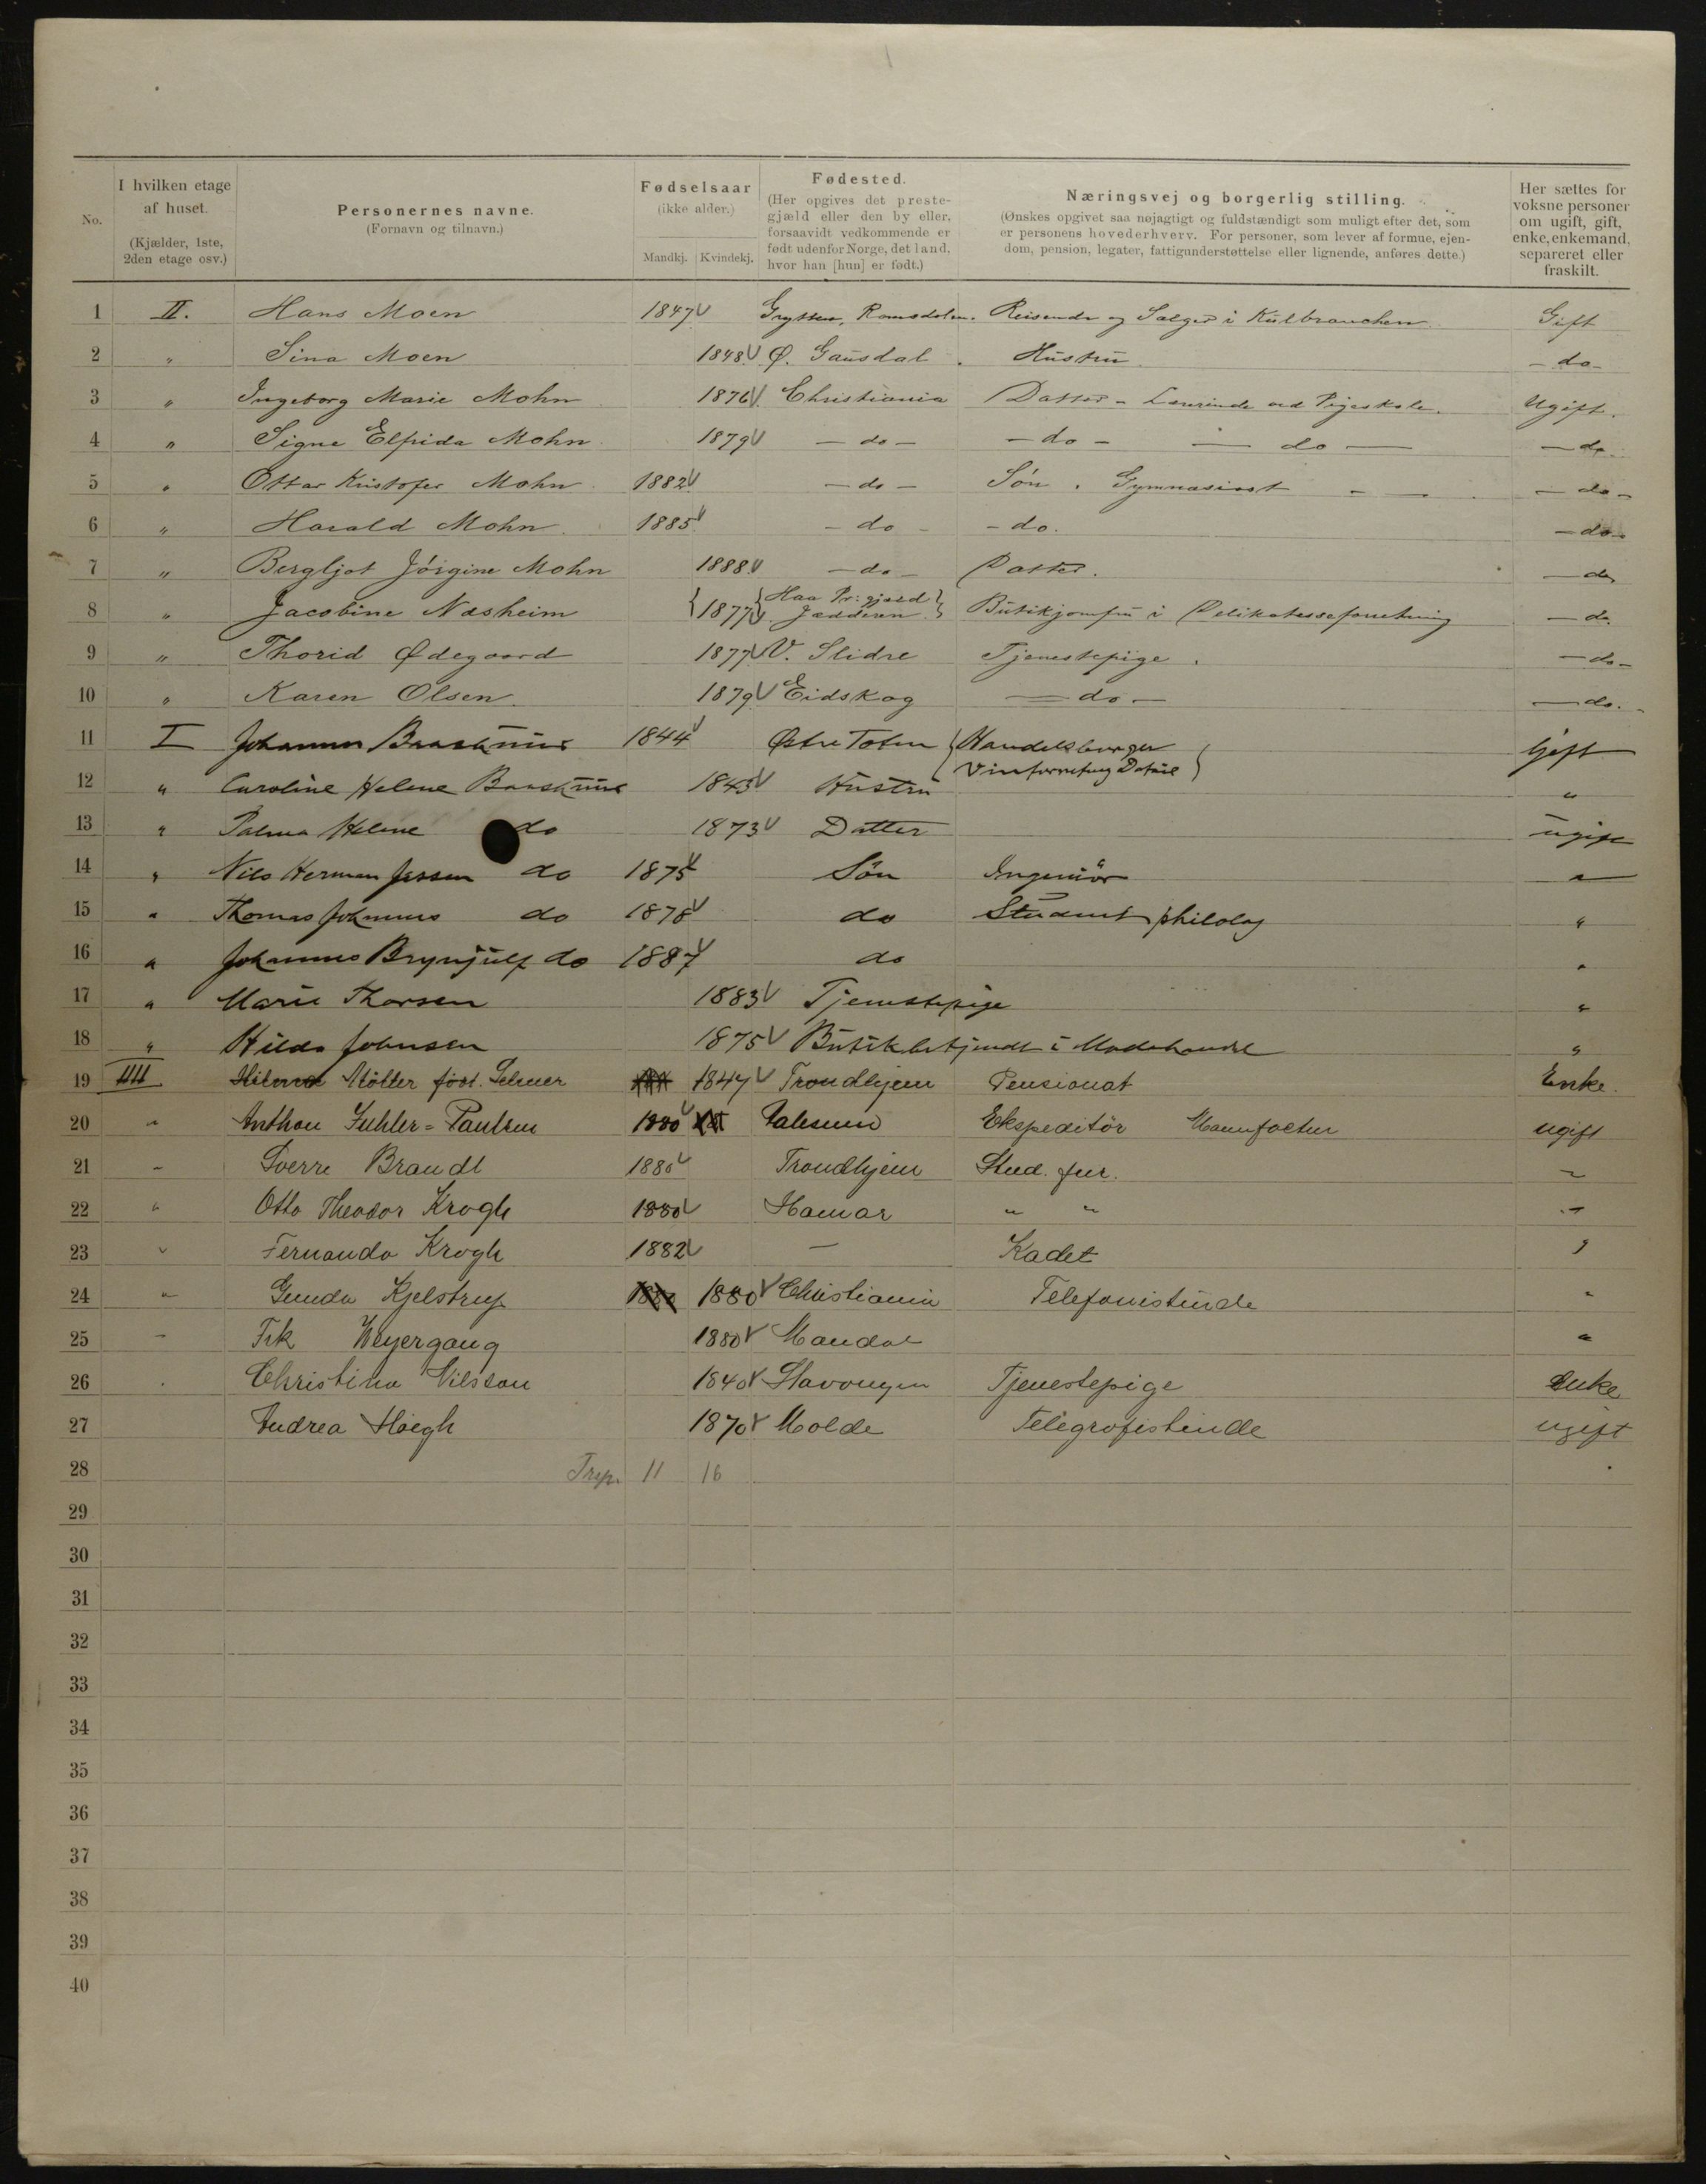 No.
I hvilken etage af huset. (Kjælder, 1ste, 2den etage osv.)
Personernes navne. (Fornavn og tilnavn.)
Fødselsaar (ikke alder.) Mandkj. Kvindekj.
Fødested. (Her opgives det prestegjæld eller den by eller, forsaavidt vedkommende er født udenfor Norge, det land, hvor han [hun] er født.)
Næringsvej og borgerlig stilling. (Ønskes opgivet saa nøjagtigt og fuldstændigt som muligt efter det, som er personens hovederhverv. For personer, som lever af formue, ejendom, pension, legater, fattigunderstøttelse eller lignende, anføres dette.)
Her sættes for voksne personer om ugift, gift, enke, enkemand, separeret eller fraskilt.
1 II. Hans Moen 1847 Grytten, Romsdalen. Reisende og Sælger i Kulbranchen Gift
2 " Sina Moen 1848 Ø. Gausdal. Hustru - do -
3 " Ingeborg Marie Mohn 1876 Christiania Datter - Lærerinde ved Pigeskole. Ugift.
4 " Signe Elfrida Mohn 1879 - do - - do - - do - - do -
5 " Ottar Kristofer Mohn 1882 - do - Søn. Gymnasiast - do -
6 " Harald Mohn 1885 - do - - do. - do -
7 " Bergljot Jørgine Mohn 1888 - do - Datter. - do
8 " Jacobine Næsheim 1877 Haa Pr: gjæld Jædderen Butikjomfru i Delikatesseforretning - do.
9 " Thorid Ødegaard 1877 V. Slidre Tjenestepige. - do -
10 " Karen Olsen 1879 Eidskog - do - - do.
11 I Johannes 1844 Østre Toten Handelsborger Vinforretning Detail Gift
12 " Caroline Helene 1843 Hustru "
13 " Palma Helene do 1873 Datter ugift
14 " Nils Herman Jessen do 1875 Søn Ingeniør "
15 " Thomas Johannes do 1878 do Student philolog "
16 " Johannes Brynjulf do 1887 do "
17 " Marie Thorsen 1883 Tjenestepige "
18 " Hilda Johnsen 1875 Butikbetjendt i Modehandel "
19 III Møller født. Selmer 1847 Trondhjem Pensionat Enke.
20 " Anthon Paulsen 1880 Aalesund Ekspeditør Manufactur ugift
21 " Sverre Brandt 1880 Trondhjem Stud. jur. "
22 " Otto Theodor Krogh 1880 Hamar " " "
23 " Fernando Krogh 1882 - Kadet "
24 " Gunda Kjelstrup 1880 Christiania Telefonistinde "
25 " Frk Weyergang 1880 Mandal "
26 Christina Nilsson 1840 Stavanger Tjenestepige Enke
27 Andrea Høegh 1870 Molde Telegrafistinde ugift
28 11 16
29
30
31
32
33
34
35
36
37
38
39
40